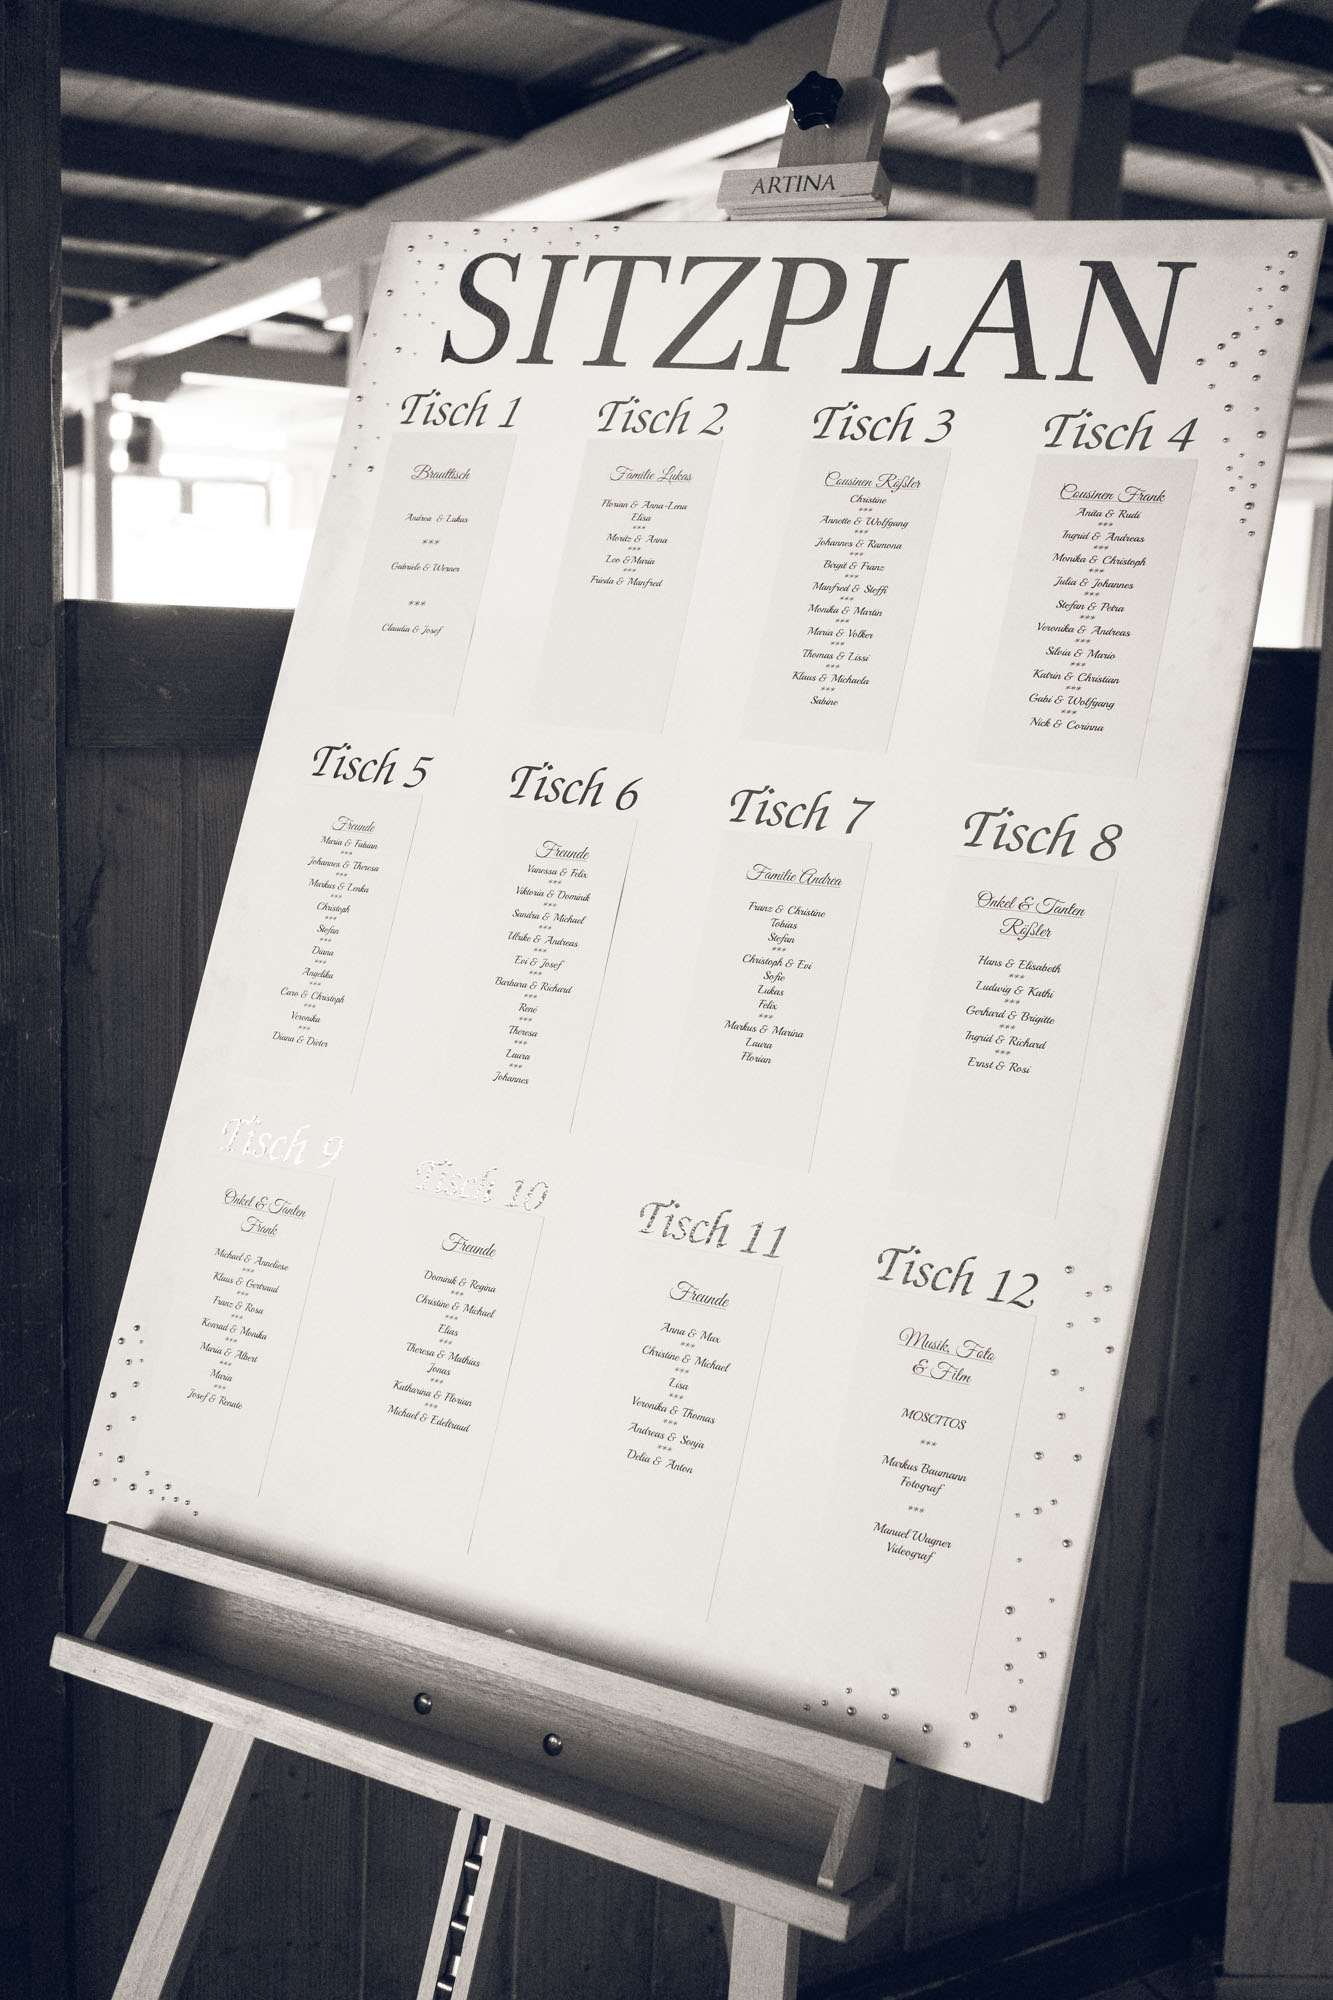 ARTINA
SITZPLAN
Tisch 1
Brauttisch
Andrea & Lukas
***
Gabriele & Werner
***
Claudia & Josef
Tisch 2
Familie Lukas
Florian & Anna-Lena
Elisa
***
Moritz & Anna
***
Leo & Maria
***
Frieda & Manfred
Tisch 3
Cousinen Rößler
Christine
***
Annette & Wolfgang
***
Johannes & Ramona
***
Birgit & Franz
***
Manfred & Steffi
***
Monika & Martin
***
Maria & Volker
***
Thomas & Lissi
***
Klaus & Michaela
***
Sabine
Tisch 4
Cousinen Frank
Anita & Rudi
***
Ingrid & Andreas
***
Monika & Christoph
***
Julia & Johannes
***
Stefan & Petra
***
Veronika & Andreas
***
Silvia & Mario
***
Katrin & Christian
***
Gabi & Wolfgang
***
Nick & Corinna
Tisch 5
Freunde
Maria & Fabian
***
Johannes & Theresa
***
Markus & Lenka
***
Christoph
***
Stefan
***
Diana
***
Angelika
***
Caro & Christoph
***
Veronika
***
Diana & Dieter
Tisch 6
Freunde
Vanessa & Felix
***
Viktoria & Dominik
***
Sandra & Michael
***
Ulrike & Andreas
***
Evi & Josef
***
Barbara & Richard
***
René
***
Theresa
***
Laura
***
Johannes
Tisch 7
Familie Andrea
Franz & Christine
Tobias
Stefan
***
Christoph & Evi
Sofie
Lukas
Felix
***
Markus & Marina
Laura
Florian
Tisch 8
Onkel & Tanten
Rößler
Hans & Elisabeth
***
Ludwig & Kathi
***
Gerhard & Brigitte
***
Ingrid & Richard
***
Ernst & Rosi
Tisch 9
Onkel & Tanten
Frank
Michael & Anneliese
***
Klaus & Gertraud
***
Franz & Rosa
***
Konrad & Monika
***
Maria & Albert
***
Maria
***
Josef & Renate
Tisch 10
Freunde
Dominik & Regina
***
Christine & Michael
***
Elias
***
Theresa & Mathias
Jonas
***
Katharina & Florian
***
Michael & Edeltraud
Tisch 11
Freunde
Anna & Max
***
Christine & Michael
***
Lisa
***
Veronika & Thomas
***
Andreas & Sonja
***
Delia & Anton
Tisch 12
Musik, Foto
& Film
MOSCITOS
***
Markus Baumann
Fotograf
***
Manuel Wagner
Videograf